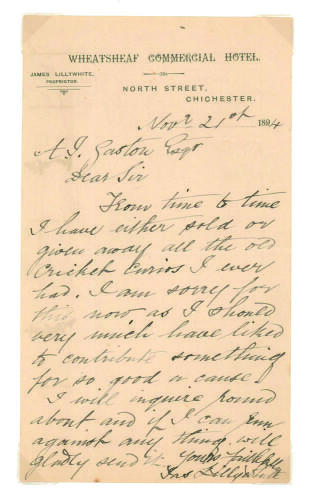 WHEATSHEAF COMMERCIAL HOTEL.
JAMES LILLYWHITE,
PROPRIETOR.
NORTH STREET,
CHICHESTER.
Novr 21st 1894
A. J. Gaston Esqr
Dear Sir
From time to time
I have either sold or
given away all the old
Cricket Curios I ever
had. I am sorry for
this now as I should
very much have liked
to contribute something
for so good a cause
I will inquire round
about and if I can run
against any thing will
gladly send it. Yours faithfully
Jas Lillywhite